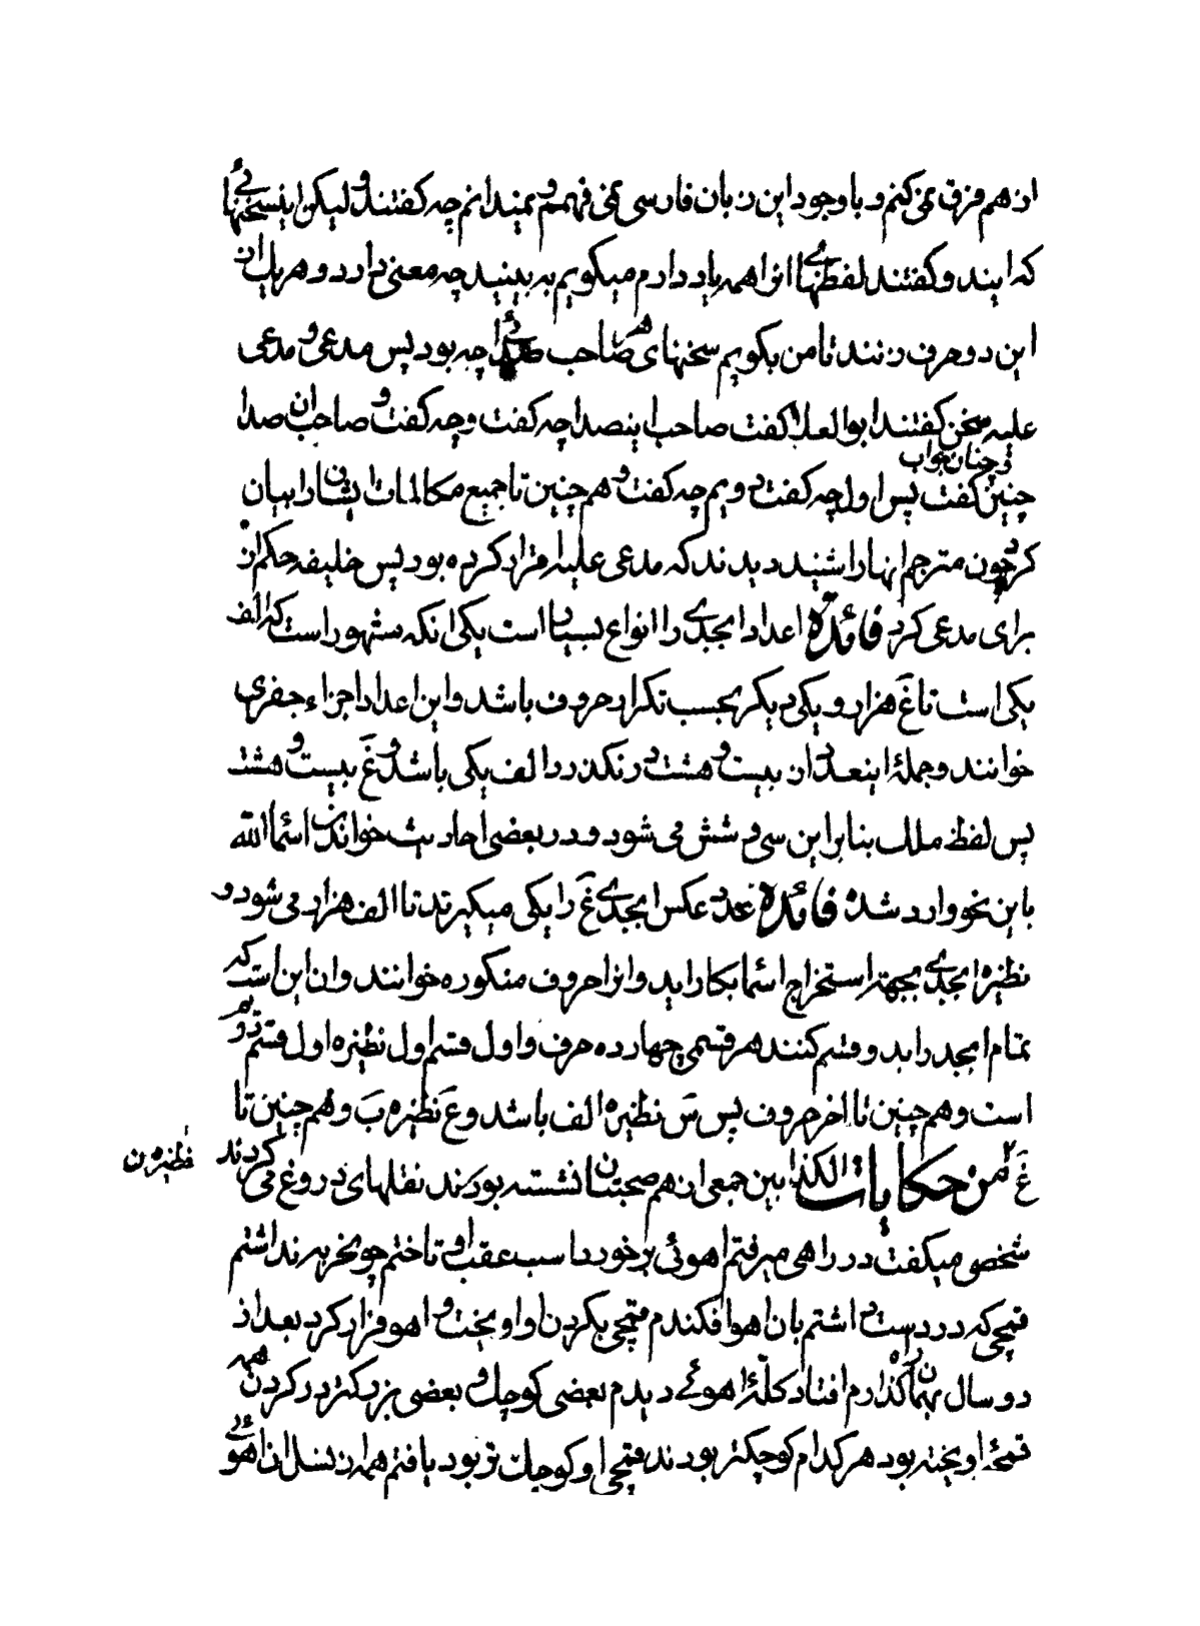 از هم فرق نمی‌کنم و با وجود این زبان فارسی نمی فهمم و نمیدانم چه کفتند و لیکن اینسخنهائی
که ایندو کفتند لفظهای انرا همه یاد دارم میکویم به بینید چه معنی دارد و هر یك از
این دو حرف زنند تا من بکویم سخنهای صاحب هر صدائی چه بود پس مدعی و مدعی
علیه سخن کفتند ابو العلا کفت صاحب اینصدا چه کفت و چه کفت و صاحب ان صدا
و چنان جواب
چنین کفت پس اول چه کفت دویم چه کفت و هم چنین تا جمیع مکالمات ایشان را بیان
کرد چون مترجم انها را شنید دیدند که مدعی علیه اقرار کرده بود پس خلیفه حکم ان
برای مدعی کرد فائدة اعداد ابجدی را انواع بسیار است یکی انکه مشهور است که الف
یکی است تا غ هزار و یکی دیکر بحسب تکرار حروف باشد و این اعداد اجزاء جفری
خوانند و جملۀ اینعدد از بیست و هشت در نکذرد الف یکی باشد و غ بیست و هشت
پس لفظ ملك بنابر این سی و شش می شود و در بعضی احادیث خواندن اسماء الله
باین نحو وارد شده فائدة عدد عکس ابجدی غ را یکی میکیرند تا الف هزار می شود و
نظیره ابجدی بجهة استخراج اسما بکار اید و انرا حروف منکوره خوانند و ان این است که
تمام ابجد را بدو قسم کنند هر قسمی چهارده حرف و اول قسم اول نظیره اول قسم دویم
است و هم چنین تا اخر حروف پس س نظیره الف باشد و ع نظیره ب و هم چنین تا
نظیره ن
غ من حکایات الکذابین جمعی از هم صحبتان نشسته بودند نقلهای دروغ می کردند
شخصی میکفت در راهی میرفتم اهوئی بر خورد اسب عقب او تاختم چون حربه نداشتم
قمچی که در دست داشتم بان اهو افکندم قمچی بکردن او اویخت و اهو فرار کرد بعد از
دو سال بهمان راه کذارم افتاد کلۀ اهوئی دیدم بعضی کوچك و بعضی بزرکتر در کردن همه
قمچۀ اویخته بود هر کدام کوچکتر بودند قمچی او کوچك تر بود یافتم همه از نسل ان اهوئی